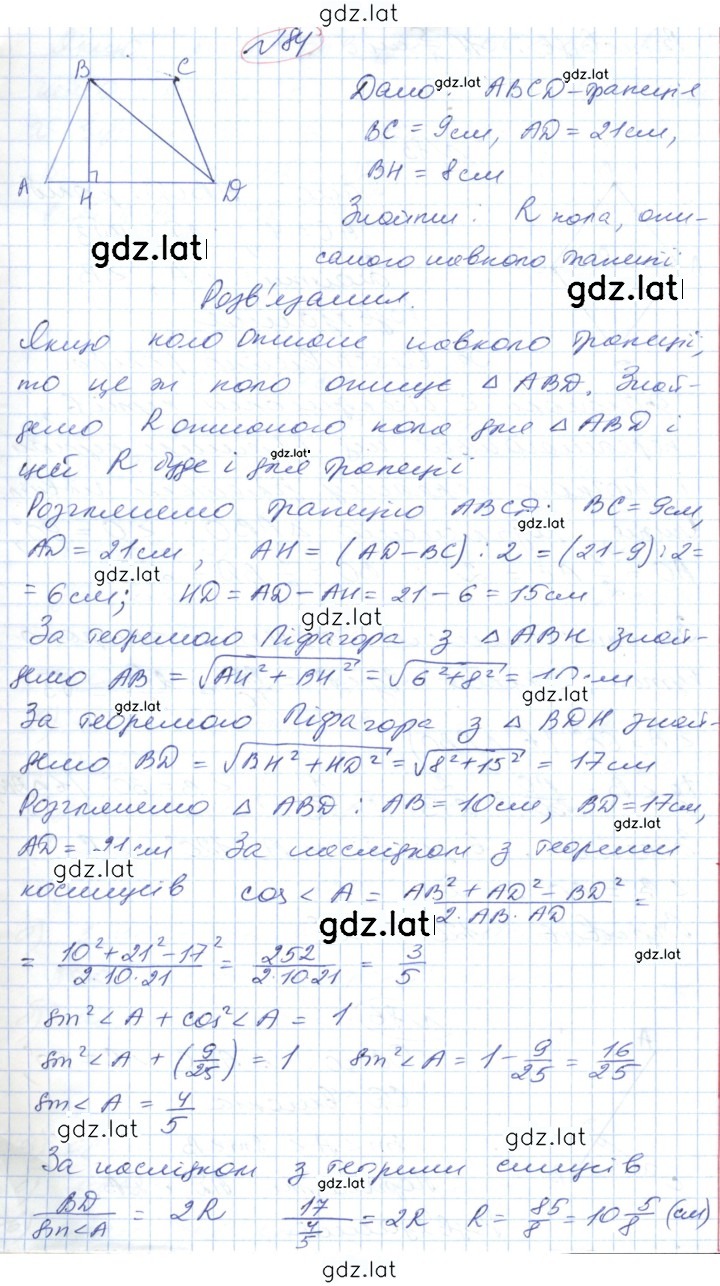 gdz.lat
№84
B C
A H D
Дано: gdz.lat ABCD - gdz.lat трапеція
BC = 9см, AD = 21см,
BH = 8см
Знайти: R кола, опи-
gdz.lat
саного навколо трапеції
gdz.lat
Розв'язання.
Якщо коло описане навколо трапеції,
то це ж коло описує △ ABD. Знай-
демо R описаного кола для △ ABD і
gdz.lat
цей R буде і для трапеції
Розглянемо трапецію ABCD: BC = 9см,
gdz.lat
AD = 21см, AH = (AD-BC) : 2 = (21-9) : 2 =
gdz.lat
= 6см; HD = AD - AH = 21 - 6 = 15см
gdz.lat
За теоремою Піфагора з △ ABH знай-
демо AB = √AH² + BH² = √6²+8² = 10см
gdz.lat gdz.lat
За теоремою Піфагора з △ BDH знай-
демо BD = √BH² + HD² = √8²+15² = 17см
Розглянемо △ ABD: AB = 10см, BD = 17см,
gdz.lat
AD = 21см За наслідком з теореми
gdz.lat
косинусів cos < A = AB² + AD² - BD² / 2·AB·AD =
gdz.lat
= 10²+21²-17² / 2·10·21 = 252 / 2·10·21 = 3/5
gdz.lat
sin² < A + cos² < A = 1
sin² < A + (9/25) = 1 sin² < A = 1 - 9/25 = 16/25
sin < A = 4/5
gdz.lat gdz.lat
За наслідком з теореми синусів
gdz.lat
BD / sin < A = 2R 17 / 4/5 = 2R R = 85/8 = 10 5/8 (см)
gdz.lat